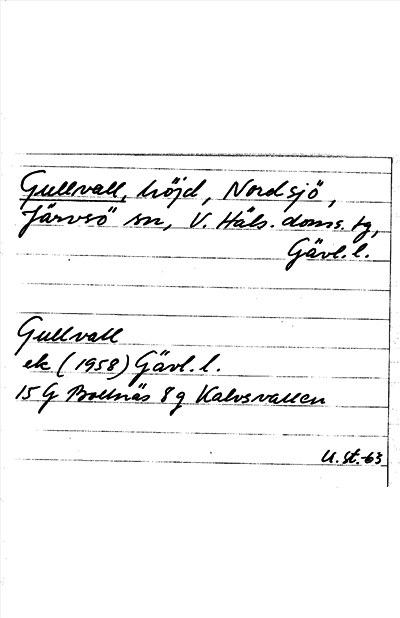 Gullvall, höjd, Nordsjö,
Järvsö sn, V. Häls. doms. tg,
Gävl. l.
Gullvall
ek (1958) Gävl. l.
15 G Bollnäs 8 g Kalvsvallen
U. St. -63